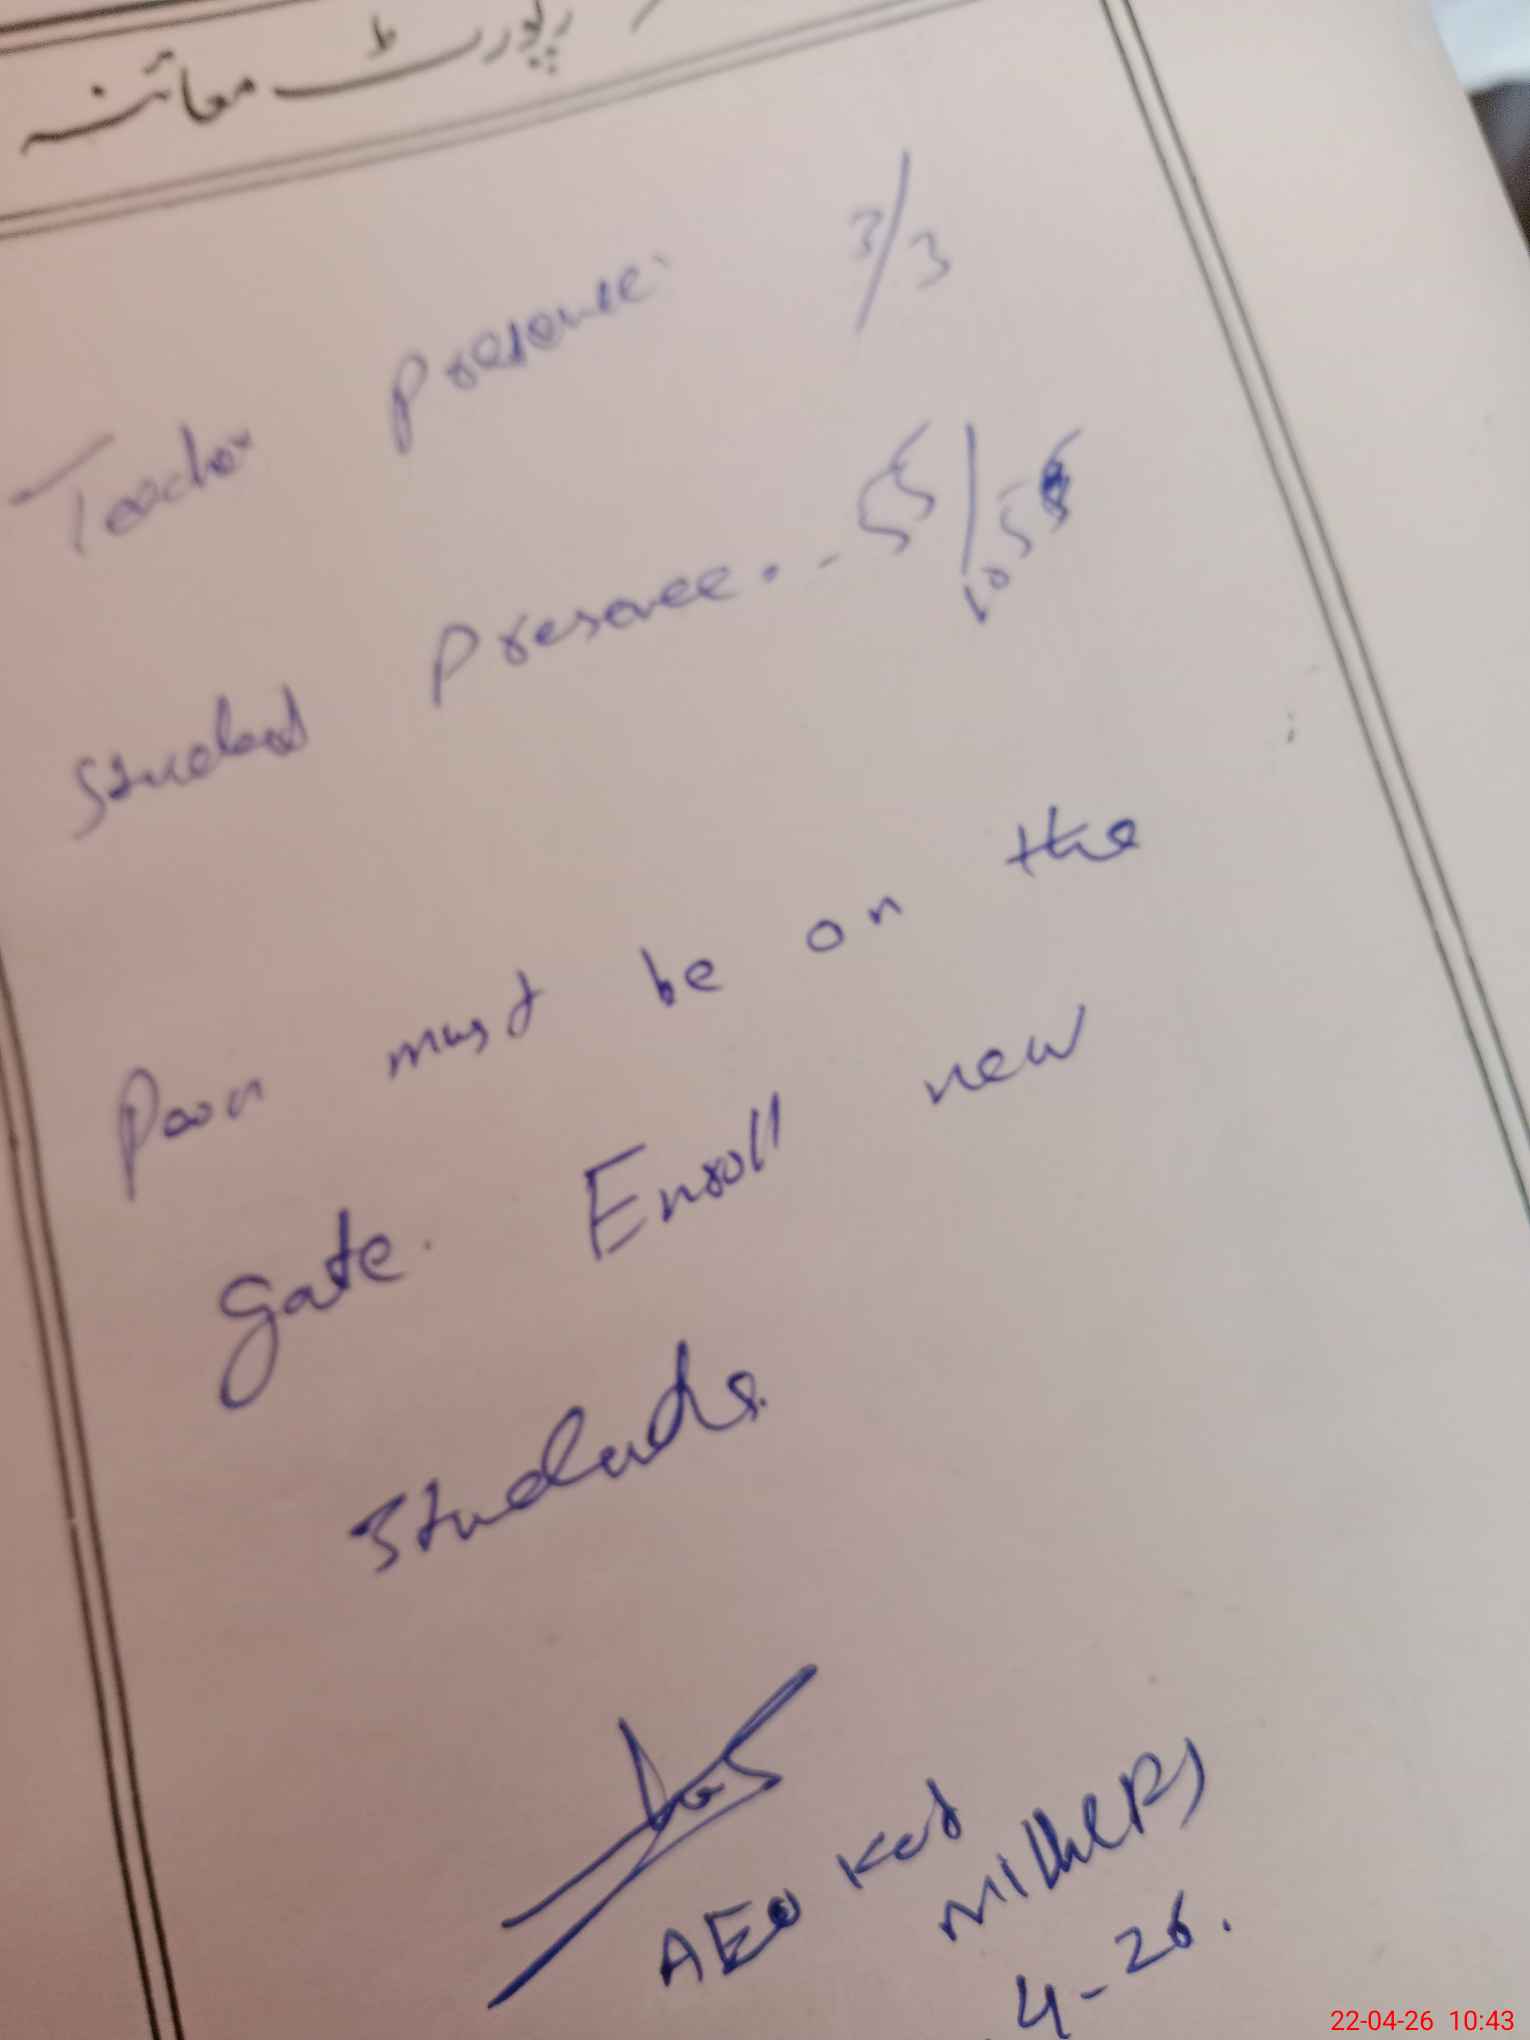 رپورٹ معائنہ
Teacher presence. 3/3
Student Presence. - 55/55
Peon must be on the
gate. Enroll new
Students.
AEO Kot
4-26.
22-04-26 10:43